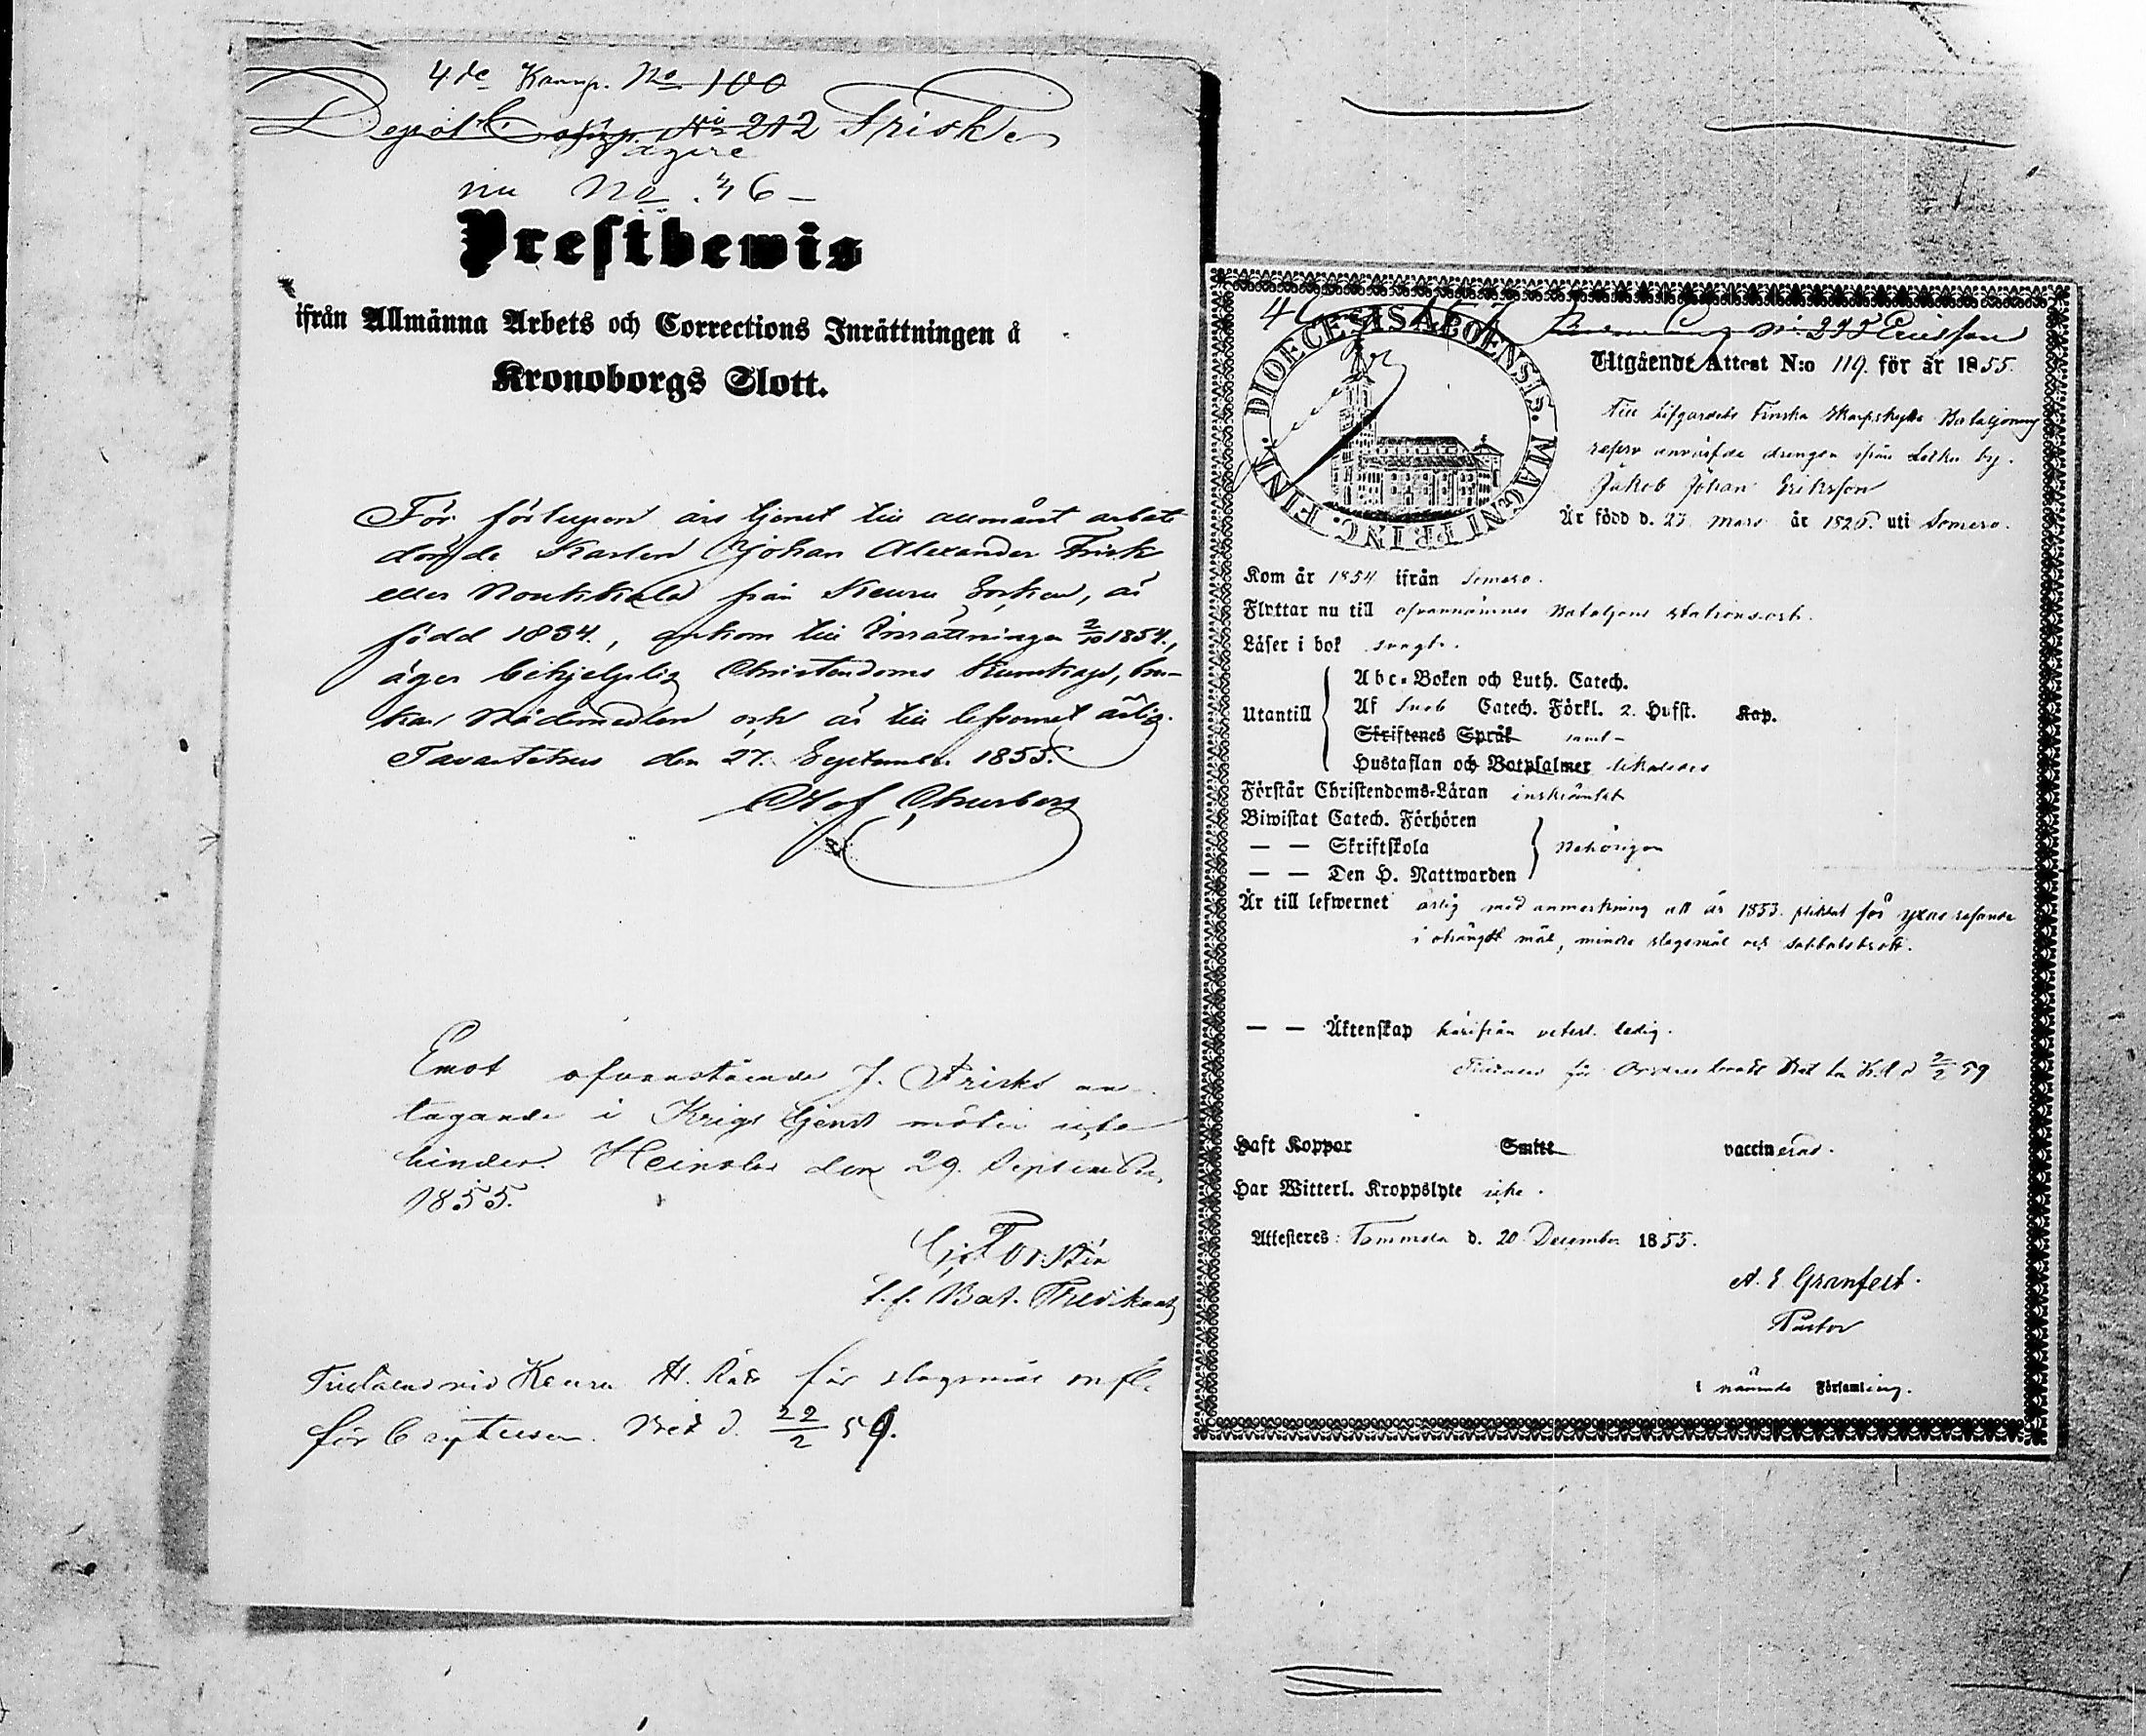 4.de Komp. No 100
Depot Comp. No 212 Frisk
Jägare
nu No. 46 –
Prestbewis
ifrån Allmänna Arbets och Corrections Inrättningen å
Kronoborgs Slott.
För förlupen års tjenst till allmänt arbete
dömde Karlen Johan Alexander Frisk
eller Noukkala från Keuru Socken, är
född 1834., ankom till Inrättningen 2/10 1854.,
äger behjelplig Christendoms Kunskap, bru-
kar Nådemedlen och är till lefvernet ärlig.
Tavastehus den 27. September 1855.
Olof Churberg
Emot ofvanstående J. Frisks an-
tagande i Krigs tjenst möter icke
hinder. Heinola den 29. September
1855.
t.f. Bat. Predikant
Keuru H. Rätt för slagsmål
d. 22/2 59.
DIOECESIS ABOENSIS. MAGNI PRINC. FINL.
No: 275 Ericsson
Utgående Attest N:o 119. för år 1855.
Till Lifgardets Finska Skarpskytte Bataljons
reserv anvärfde drengen ifrån Letku by.
Jakob Johan Eriksson
Är född d. 23 Mars år 1826. uti Somero.
Kom år 1854 ifrån Somero.
Flyttar nu till ofvannämnde Bataljons stationsort.
Läser i bok svagt.
Utantill
Abc-Boken och Luth. Catech.
Af Sveb Catech. Förkl. 2. Hufst. Kap.
Skriftenes Språk samt
Hustaflan och Botpsalmer likaledes
Förstår Christendoms-Läran inskränkt
Biwistat Catech. Förhören
— — Skriftskola
— — Den H. Nattwarden
Behörigen
Är till lefwernet ärlig med anmerkning att år 1853. pliktat för yxas
i trängdt mål, mindre slagsmål och sabbatsbrott.
— — Äktenskap härifrån veterl. ledig.
d 2/2 59
Haft Koppor Smitt vaccinerad.
Har Witterl. Kroppslyte icke.
Attesteres: Tammela d. 20 December 1855.
A. E Granfelt.
Pastor
i nämnde Församling.